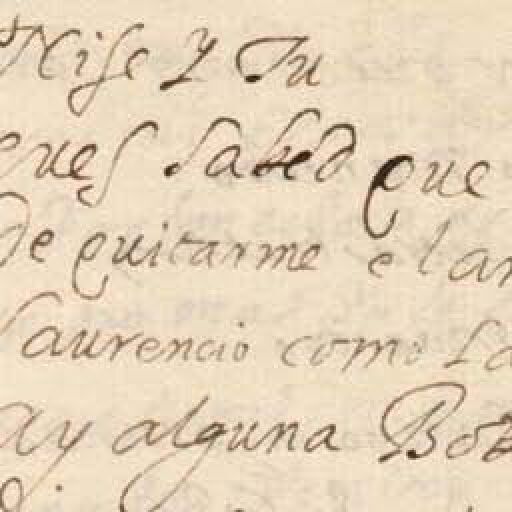 Nise y Tu
eues sabed que
de quitarme el am
laurencio como la
ay alguna Bob